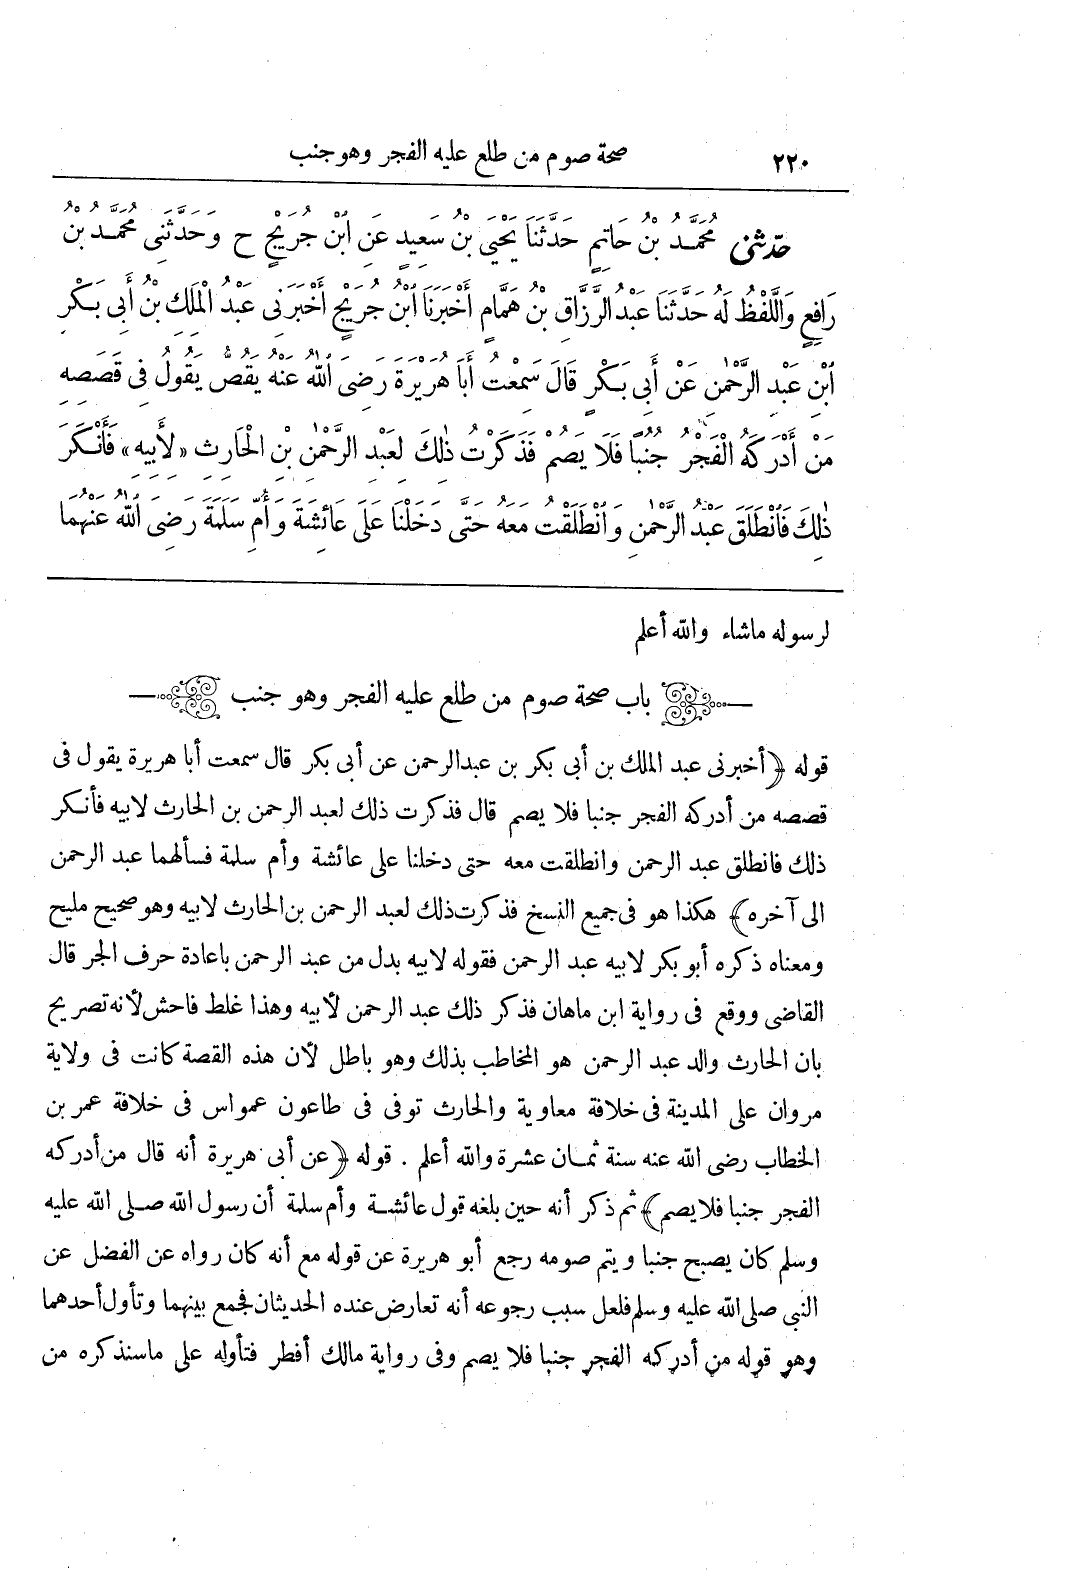 ٢٢٠ صحة صوم من طلع عليه الفجر وهو جنب
حدّثنى مُحَمَّدُ بْنُ حَاتِمٍ حَدَّثَنَا يَحْيَى بْنُ سَعِيدٍ عَنِ ابْنِ جُرَيْجٍ ح وَحَدَّثَنِى مُحَمَّدُ بْنُ
رَافِعٍ وَاللَّفْظُ لَهُ حَدَّثَنَا عَبْدُ الرَّزَّاقِ بْنُ هَمَّامٍ أَخْبَرَنَا ابْنُ جُرَيْجٍ أَخْبَرَنِى عَبْدُ الْمَلِكِ بْنُ أَبِى بَكْرِ
ابْنِ عَبْدِ الرَّحْمٰنِ عَنْ أَبِى بَكْرٍ قَالَ سَمِعْتُ أَبَا هُرَيْرَةَ رَضِىَ اللّٰهُ عَنْهُ يَقُصُّ يَقُولُ فِى قَصَصِهِ
مَنْ أَدْرَكَهُ الْفَجْرُ جُنُبًا فَلَا يَصُمْ فَذَكَرْتُ ذٰلِكَ لِعَبْدِ الرَّحْمٰنِ بْنِ الْحَارِثِ «لِأَبِيهِ» فَأَنْكَرَ
ذٰلِكَ فَانْطَلَقَ عَبْدُ الرَّحْمٰنِ وَانْطَلَقْتُ مَعَهُ حَتَّى دَخَلْنَا عَلَى عَائِشَةَ وَأُمِّ سَلَمَةَ رَضِىَ اللّٰهُ عَنْهُمَا
لرسوله ماشاء والله أعلم
باب صحة صوم من طلع عليه الفجر وهو جنب
قوله ﴿أخبرنى عبد الملك بن أبى بكر بن عبدالرحمن عن أبى بكر قال سمعت أبا هريرة يقول فى
قصصه من أدركه الفجر جنبا فلا يصم قال فذكرت ذلك لعبد الرحمن بن الحارث لابيه فأنكر
ذلك فانطلق عبد الرحمن وانطلقت معه حتى دخلنا على عائشة وأم سلمة فسألهما عبد الرحمن
الى آخره﴾ هكذا هو فى جميع النسخ فذكرت ذلك لعبد الرحمن بن الحارث لابيه وهو صحيح مليح
ومعناه ذكره أبو بكر لابيه عبد الرحمن فقوله لابيه بدل من عبد الرحمن باعادة حرف الجر قال
القاضى ووقع فى رواية ابن ماهان فذكر ذلك عبد الرحمن لأبيه وهذا غلط فاحش لأنه تصريح
بان الحارث والد عبد الرحمن هو المخاطب بذلك وهو باطل لأن هذه القصة كانت فى ولاية
مروان على المدينة فى خلافة معاوية والحارث توفى فى طاعون عمواس فى خلافة عمر بن
الخطاب رضى الله عنه سنة ثمان عشرة والله أعلم . قوله ﴿عن أبى هريرة أنه قال من أدركه
الفجر جنبا فلا يصم﴾ ثم ذكر أنه حين بلغه قول عائشة وأم سلمة أن رسول الله صلى الله عليه
وسلم كان يصبح جنبا ويتم صومه رجع أبو هريرة عن قوله مع أنه كان رواه عن الفضل عن
النبى صلى الله عليه وسلم فلعل سبب رجوعه أنه تعارض عنده الحديثان فجمع بينهما وتأول أحدهما
وهو قوله من أدركه الفجر جنبا فلا يصم وفى رواية مالك أفطر فتأوله على ماسنذكره من